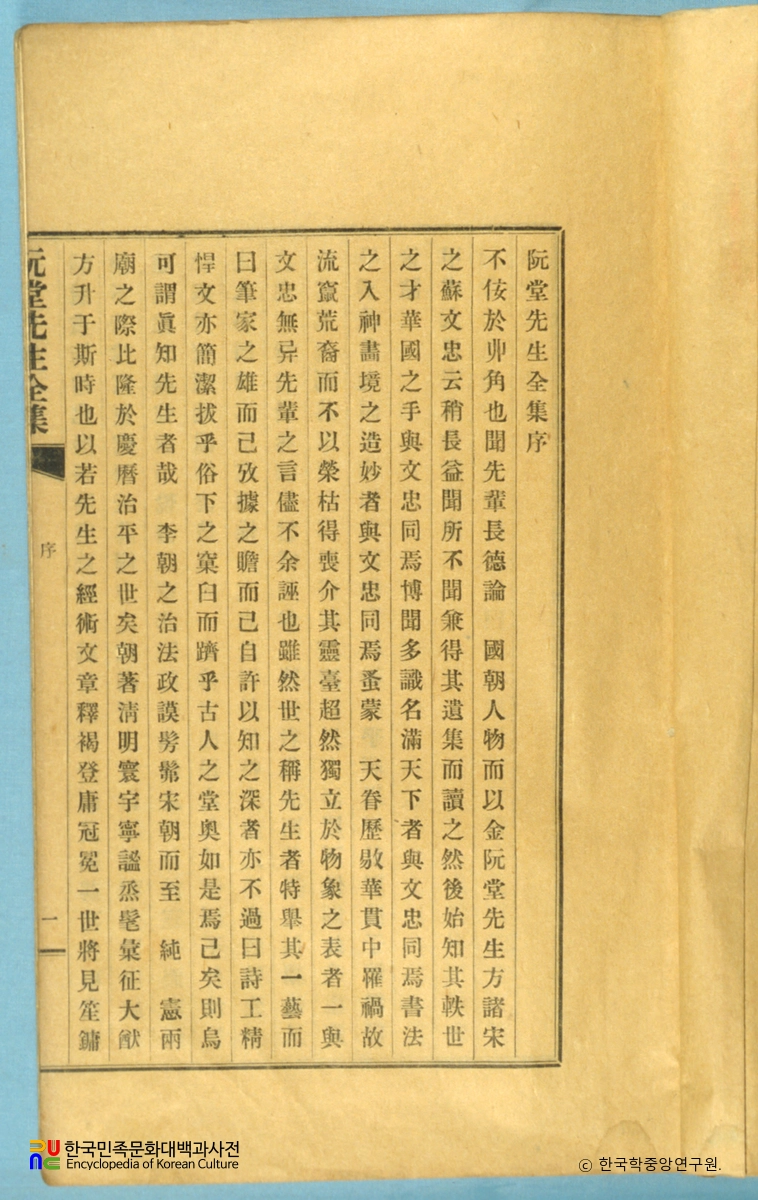 阮堂先生全集序
不佞於丱角也聞先輩長德論 國朝人物而以金阮堂先生方諸宋
之蘇文忠云稍長益聞所不聞兼得其遺集而讀之然後始知其軼世
之才華國之手與文忠同焉博聞多識名滿天下者與文忠同焉書法
之入神畵境之造妙者與文忠同焉蚤蒙 天眷歷敭華貫中罹禍故
流竄荒裔而不以榮枯得喪介其靈臺超然獨立於物象之表者一與
文忠無异先輩之言儘不余誣也雖然世之稱先生者特舉其一藝而
曰筆家之雄而已攷據之贍而已自許以知之深者亦不過曰詩工精
悍文亦簡潔拔乎俗下之窠臼而躋乎古人之堂奧如是焉已矣則烏
可謂眞知先生者哉 李朝之治法政謨髣髴宋朝而至 純 憲兩
廟之際比隆於慶曆治平之世矣朝著淸明寰宇寧謐烝髦彙征大猷
方升于斯時也以若先生之經術文章釋褐登庸冠冕一世將見笙鏞
阮堂先生全集
序
一
한국민족문화대백과사전
Encyclopedia of Korean Culture
ⓒ 한국학중앙연구원.